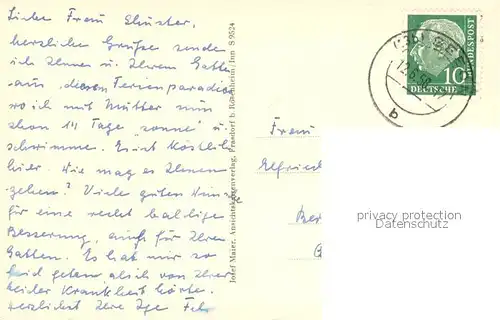 Liebe Frau Shuster,
herzliche Grüße sende
ich Ihnen u. Ihrem Gatten
aus diesem Ferienparadies
wo ich mit Mutter nun
schon 14 Tage „sonne" u.
schwimme. Es ist Köstlich
hier. Wie mag es Ihnen
gehen? Viele guten Wünsche
für eine recht baldige
Besserung, auch für Ihren
Gatten. Es hat mir so
leid getan als ich von Ihrer
beider Krankheit hörte.
Herzlichst Ihre
Josef Maier, Ansichtskartenverlag, Frasdorf b Rosenheim/Inn S 9524
12.6.58
b
10
DEUTSCHE
BUNDESPOST
Frau
Elfried
Ber
privacy protection
Datenschutz